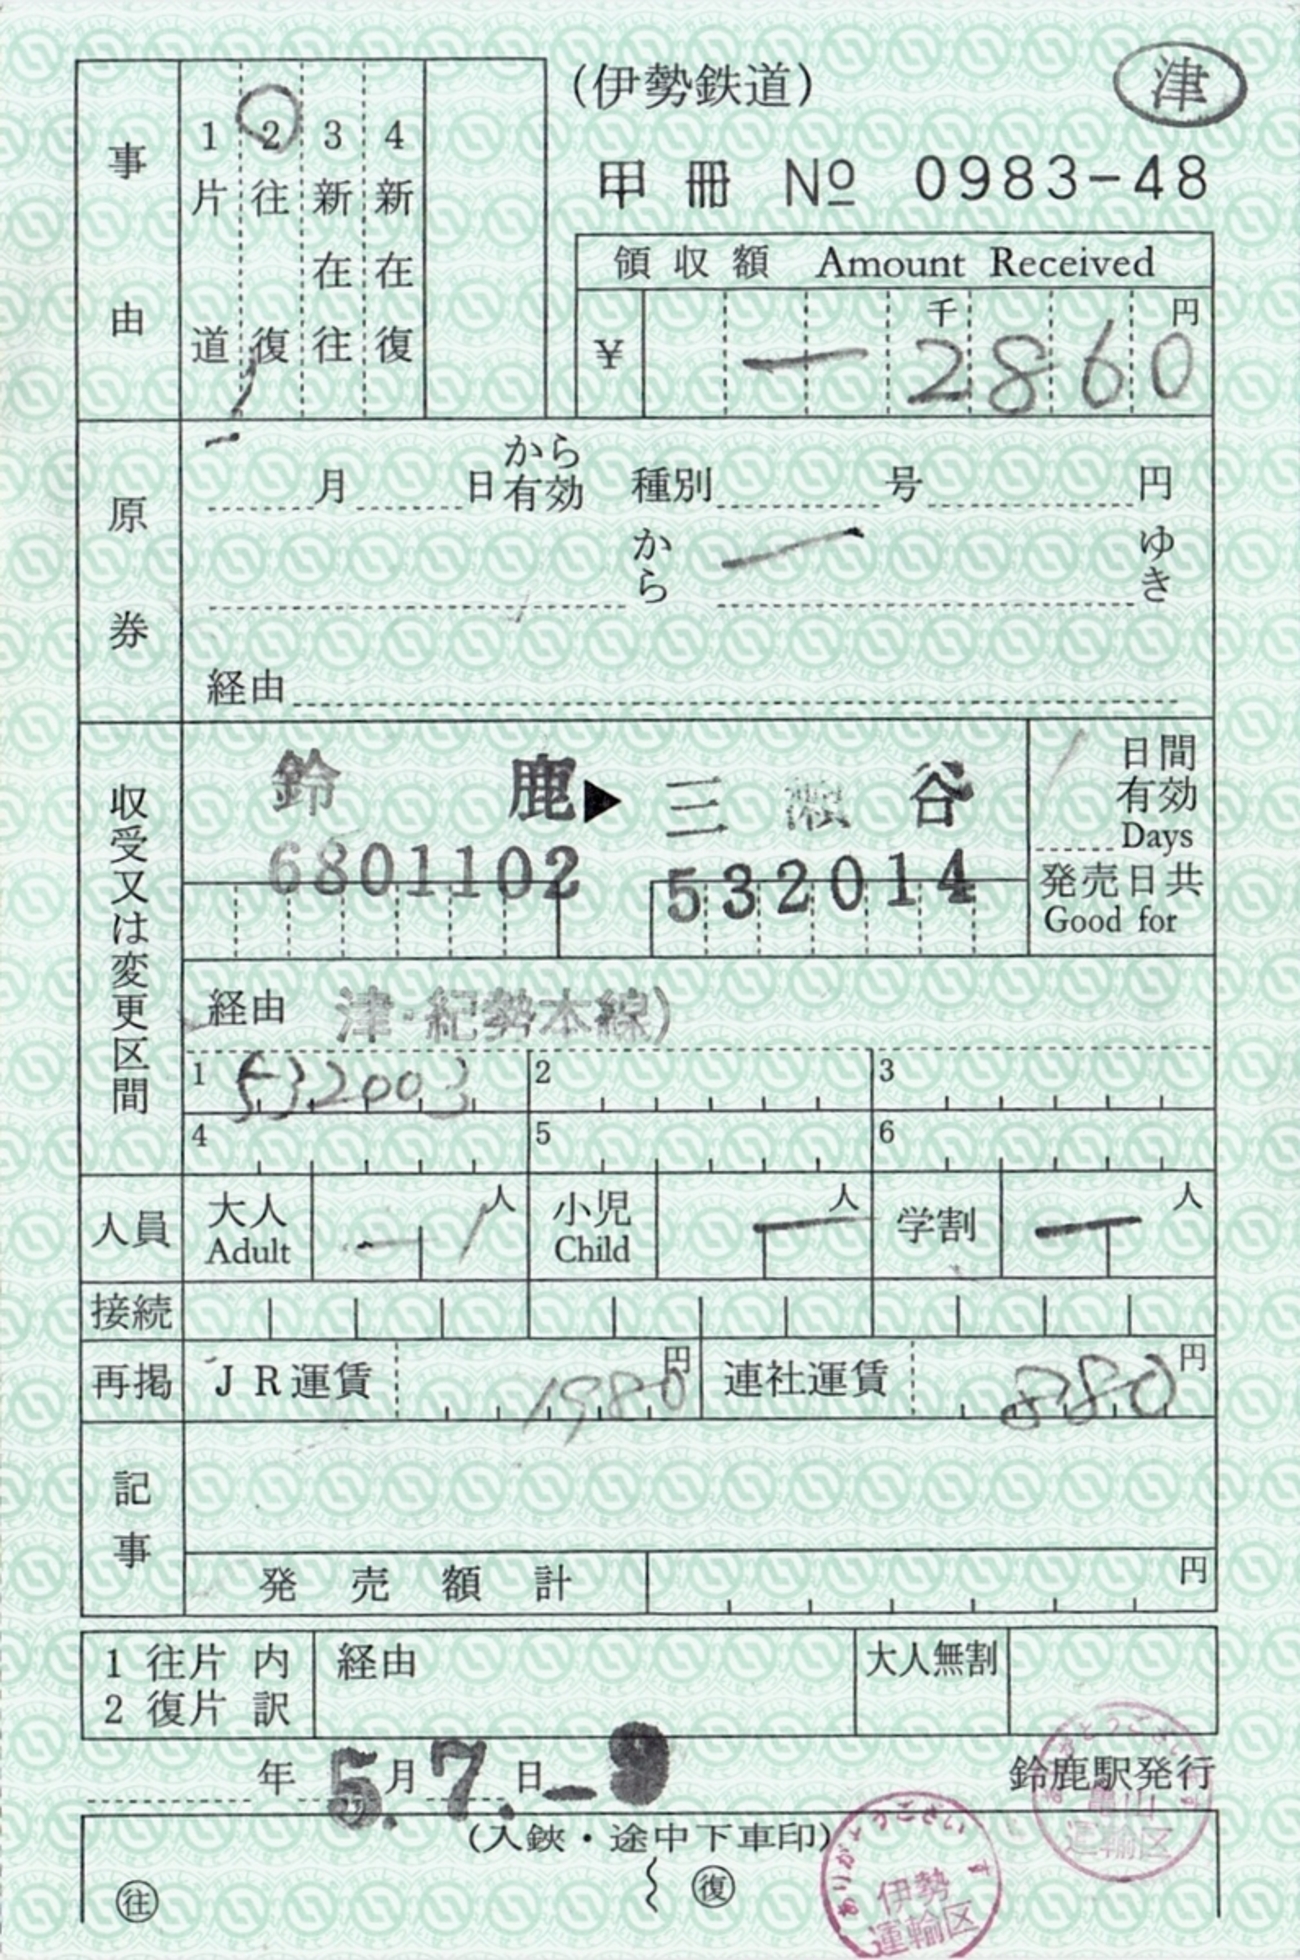 (伊勢鉄道) 津
甲冊 № 0983-48
事由
1 片道
2 往復
3 新在往
4 新在復
領収額 Amount Received
¥ 一 2860 千 円
原券
月 日から有効 種別 号 円
から ゆき
経由
収受又は変更区間
鈴鹿▶三瀬谷
6801102 532014
1 日間有効 Days
発売日共 Good for
経由 津・紀勢本線)
1 532003 2 3
4 5 6
人員 大人 Adult 1 人 小児 Child 人 学割 人
接続
再掲 JR運賃 1980 円 連社運賃 880 円
記事
発売額計 円
1 往片 内訳 経由 大人無割
2 復片
年 月 日 鈴鹿駅発行
5.7.-9
(入鋏・途中下車印)
往 復
ありがとうございます
亀山
運輸区
ありがとうございます
伊勢
運輸区